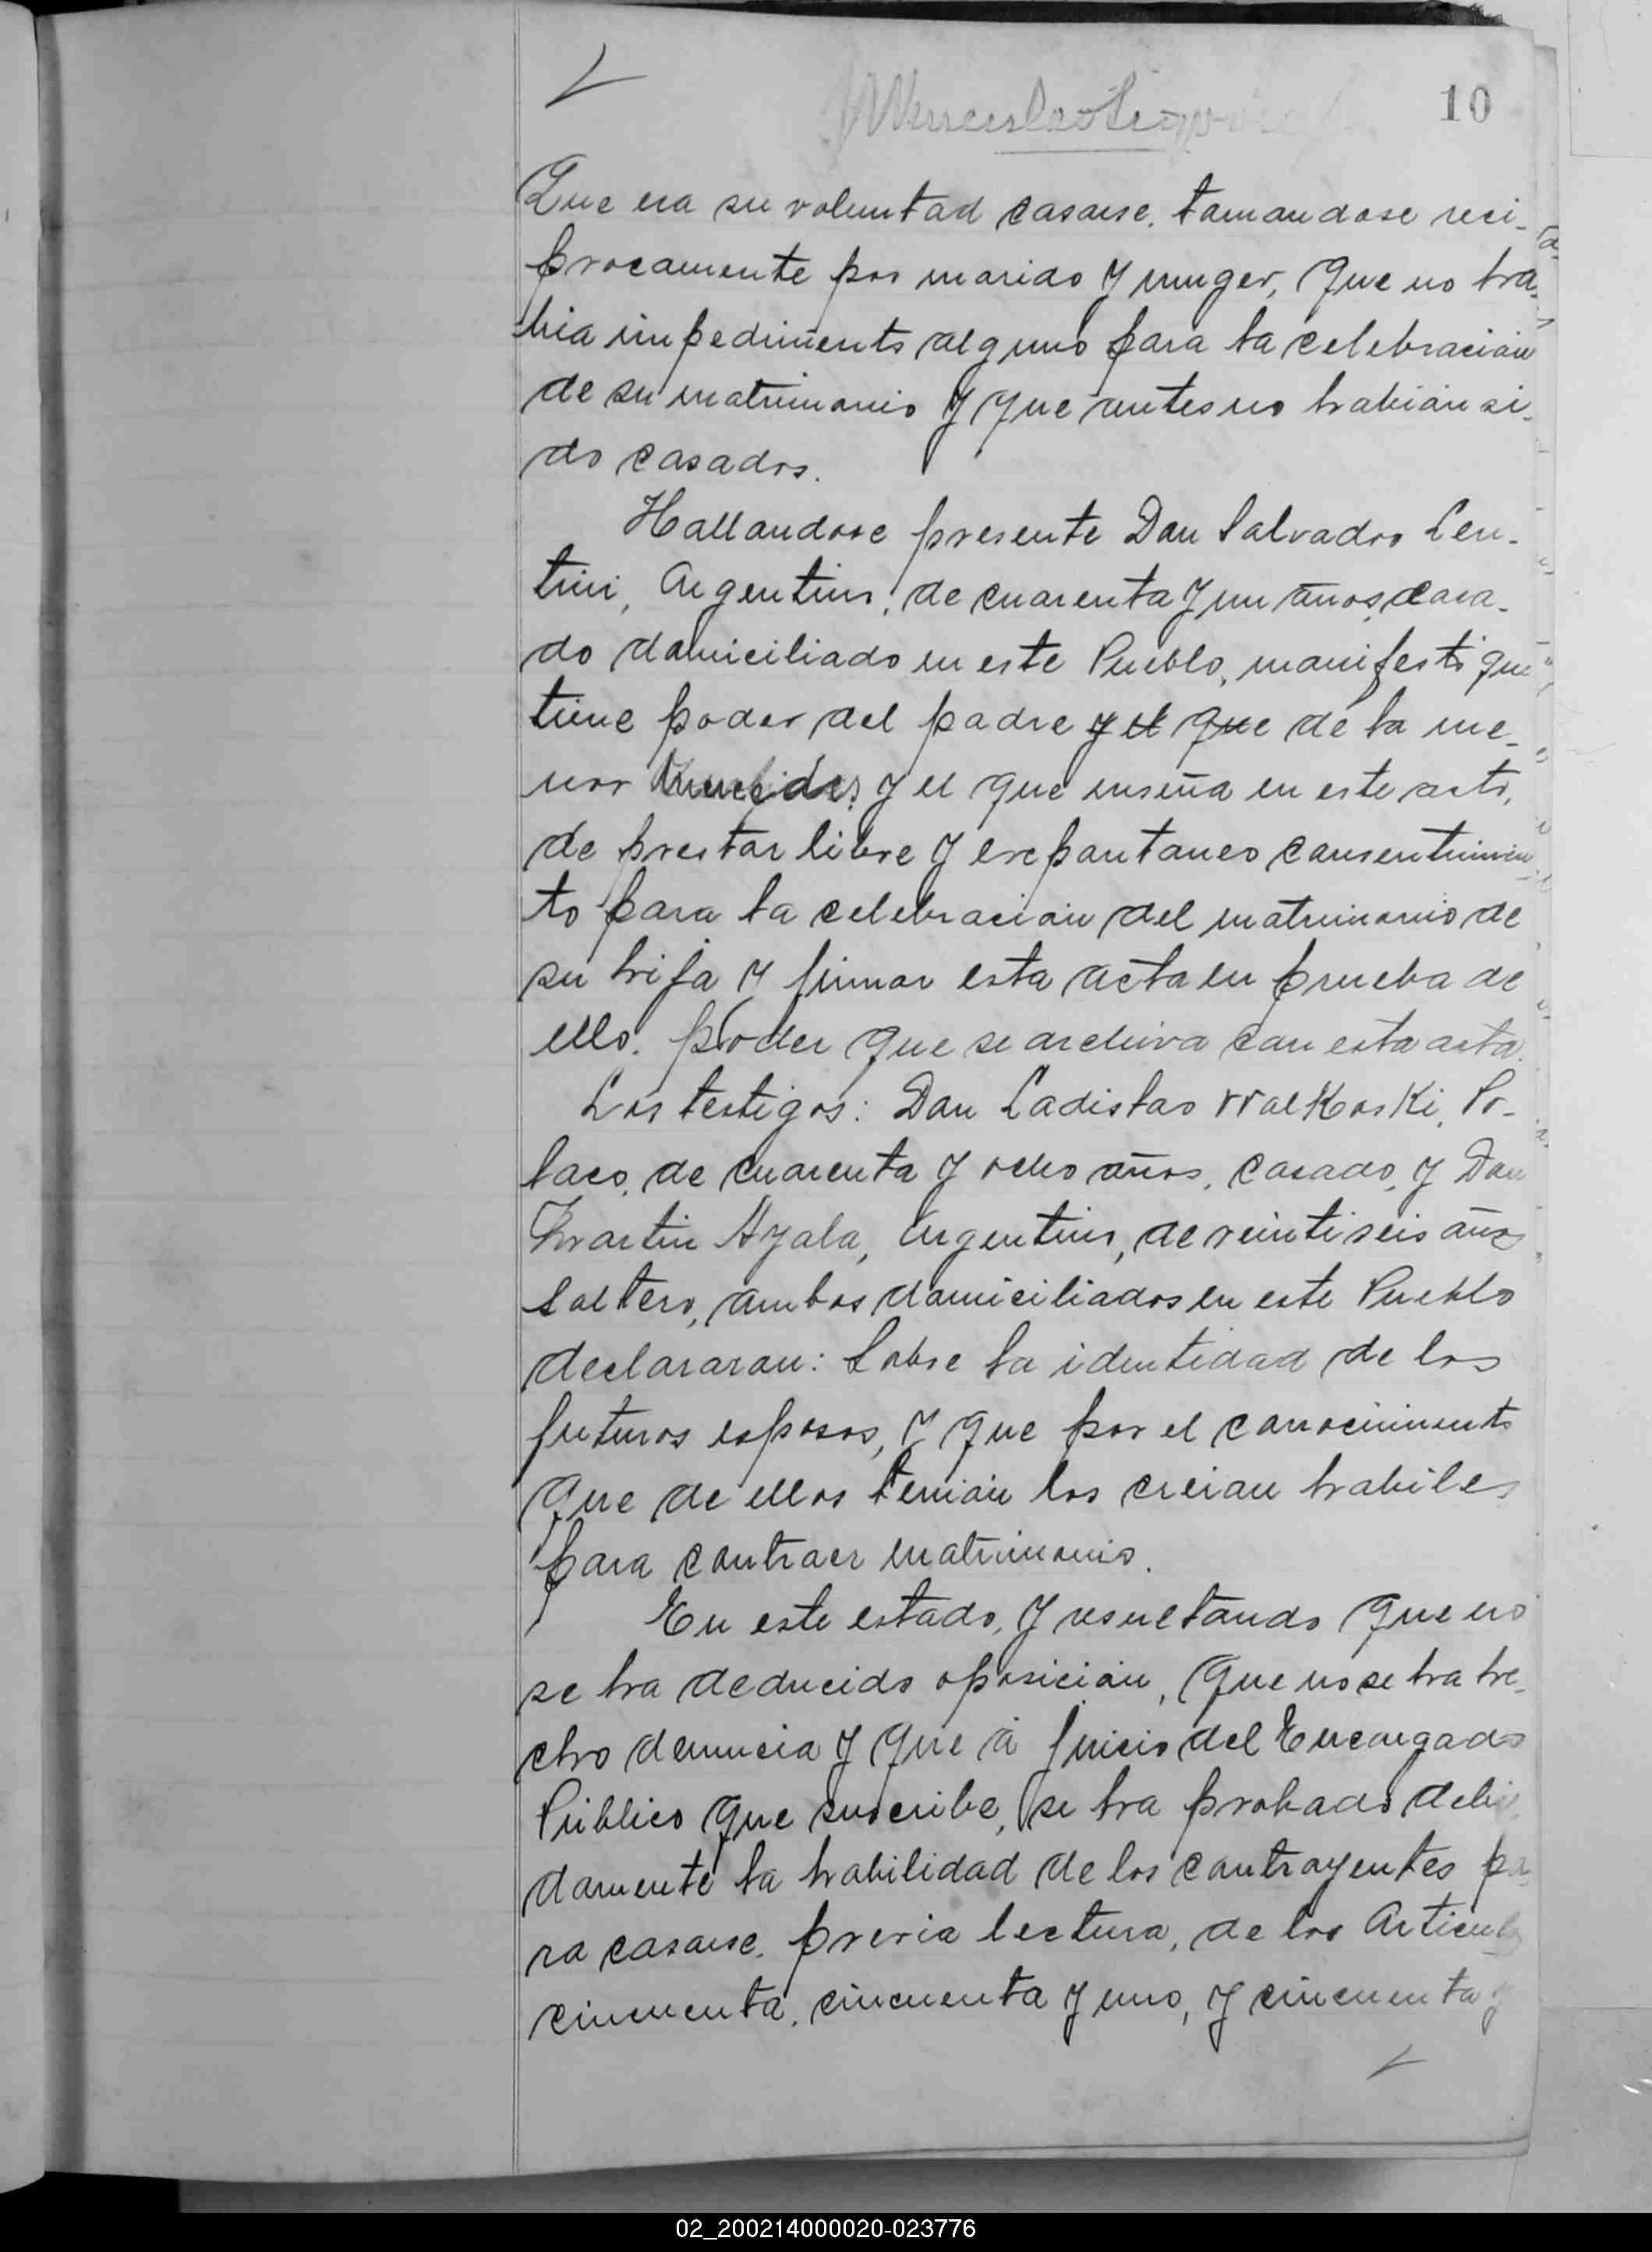 10
Que era su voluntad casarse, tomandose reci-
procamente por marido y muger, que no ha-
bia impedimento alguno para la celebración
de su matrimonio y que antes no habian si-
do casados.
Hallandose presente Don Salvador Len-
tini, Argentino, de cuarenta y un años, casa-
do domiciliado en este Pueblo, manifestó que
tiene poder del padre y el que de la me-
nor y el que enseña en este acto,
de prestar libre y expontaneo consentimien
to para la celebración del matrimonio de
su hija y firmar esta acta en prueba de
ello. poder que se archiva con esta acta.
Los testigos: Don Ladislao Walkoski, Po-
laco, de cuarenta y ocho años, casado, y Don
Martin Ayala, Argentino, de veintiseis años
Soltero, ambos domiciliados en este Pueblo
declararon: Sobre la identidad de los
futuros esposos, y que por el conocimiento
que de ellos tenián los creian habiles
para contraer matrimonio.
En este estado, y resultando que no
se ha deducido oposición, que no se ha he-
cho denuncia y que á juicio del Encargado
Público que suscribe, se ha probado debi
damente la habilidad de los contrayentes pa
ra casarse, previa lectura, de los Articulos
cincuenta, cincuenta y uno, y cincuenta y
02_200214000020-023776